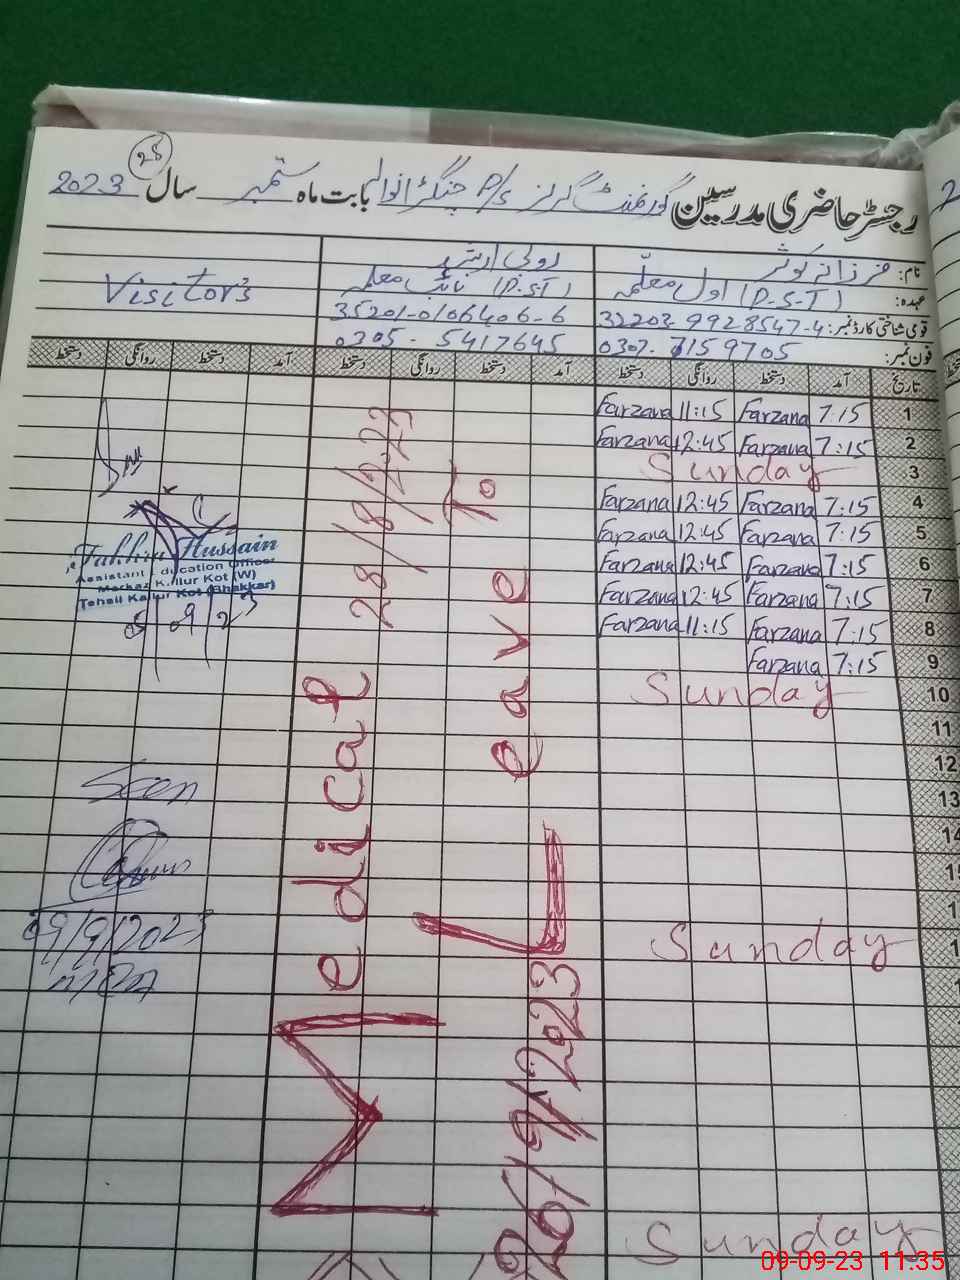 25
رجسٹر حاضری مدرسین گورنمنٹ گرلز P/S جنگڑانوالہ بابت ماہ ستمبر سال 2023
نام: فرزانہ کوثر
Visitor's
عہدہ: اول معلمہ (P.S.T) نائب معلمہ (P.S.T)
قومی شناختی کارڈ نمبر: 32203-9928547-4 35201-0106406-6
فون نمبر: 0307-7159705 0305-5417645
تاریخ آمد دستخط روانگی دستخط آمد دستخط روانگی دستخط آمد دستخط روانگی دستخط
1 7:15 Farzana 11:15 Farzana
2 7:15 Farzana 12:45 Farzana
3 Sunday
4 7:15 Farzana 12:45 Farzana
5 7:15 Farzana 12:45 Farzana
6 7:15 Farzana 12:45 Farzana
7 7:15 Farzana 12:45 Farzana
8 7:15 Farzana 11:15 Farzana
9 7:15 Farzana
10 Sunday
11
12
13
14
Sunday
Sunday
Medical 28/8/2023
Leave To
26/9/2023
Tahhir Hussain
Assistant Education Officer
Markaz Kallur Kot (W)
Tehsil Kallur Kot (Bhakkar)
05/09/23
Seen
09/9/2023
09-09-23 11:35